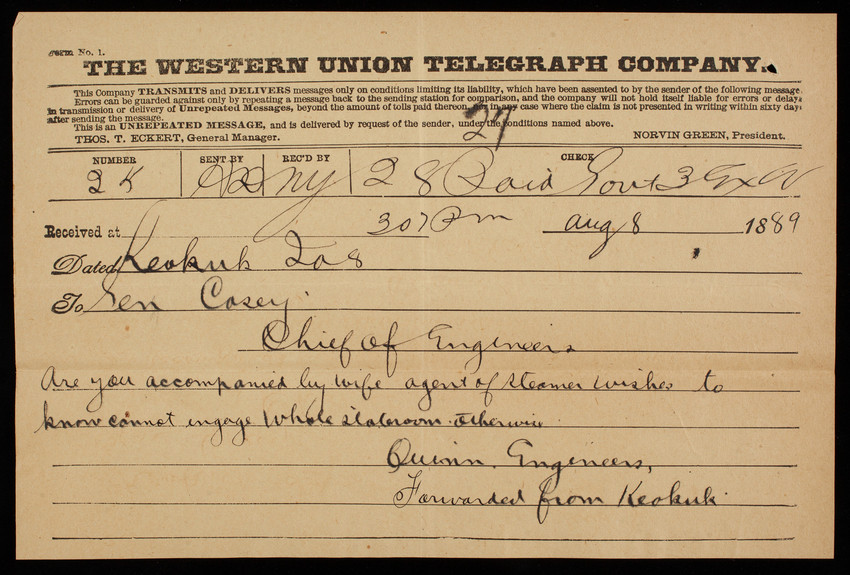 Form No. 1.
THE WESTERN UNION TELEGRAPH COMPANY.
This Company TRANSMITS and DELIVERS messages only on conditions limiting its liability, which have been assented to by the sender of the following message.
Errors can be guarded against only by repeating a message back to the sending station for comparison, and the company will not hold itself liable for errors or delays
in transmission or delivery of Unrepeated Messages, beyond the amount of tolls paid thereon, nor in any case where the claim is not presented in writing within sixty days
after sending the message.
This is an UNREPEATED MESSAGE, and is delivered by request of the sender, under the conditions named above.
27
THOS. T. ECKERT, General Manager. NORVIN GREEN, President.
NUMBER SENT BY REC'D BY CHECK
2 K ny 28 Paid Govt 3 Ex W
Received at 307 Pm Aug 8 1889
Dated Keokuk Ia 8
To Gen Casey.
Chief of Engineers
Are you accompanied by wife agent of steamer wishes to
know cannot engage whole stateroom otherwise
Quinn. Engineers,
Forwarded from Keokuk.